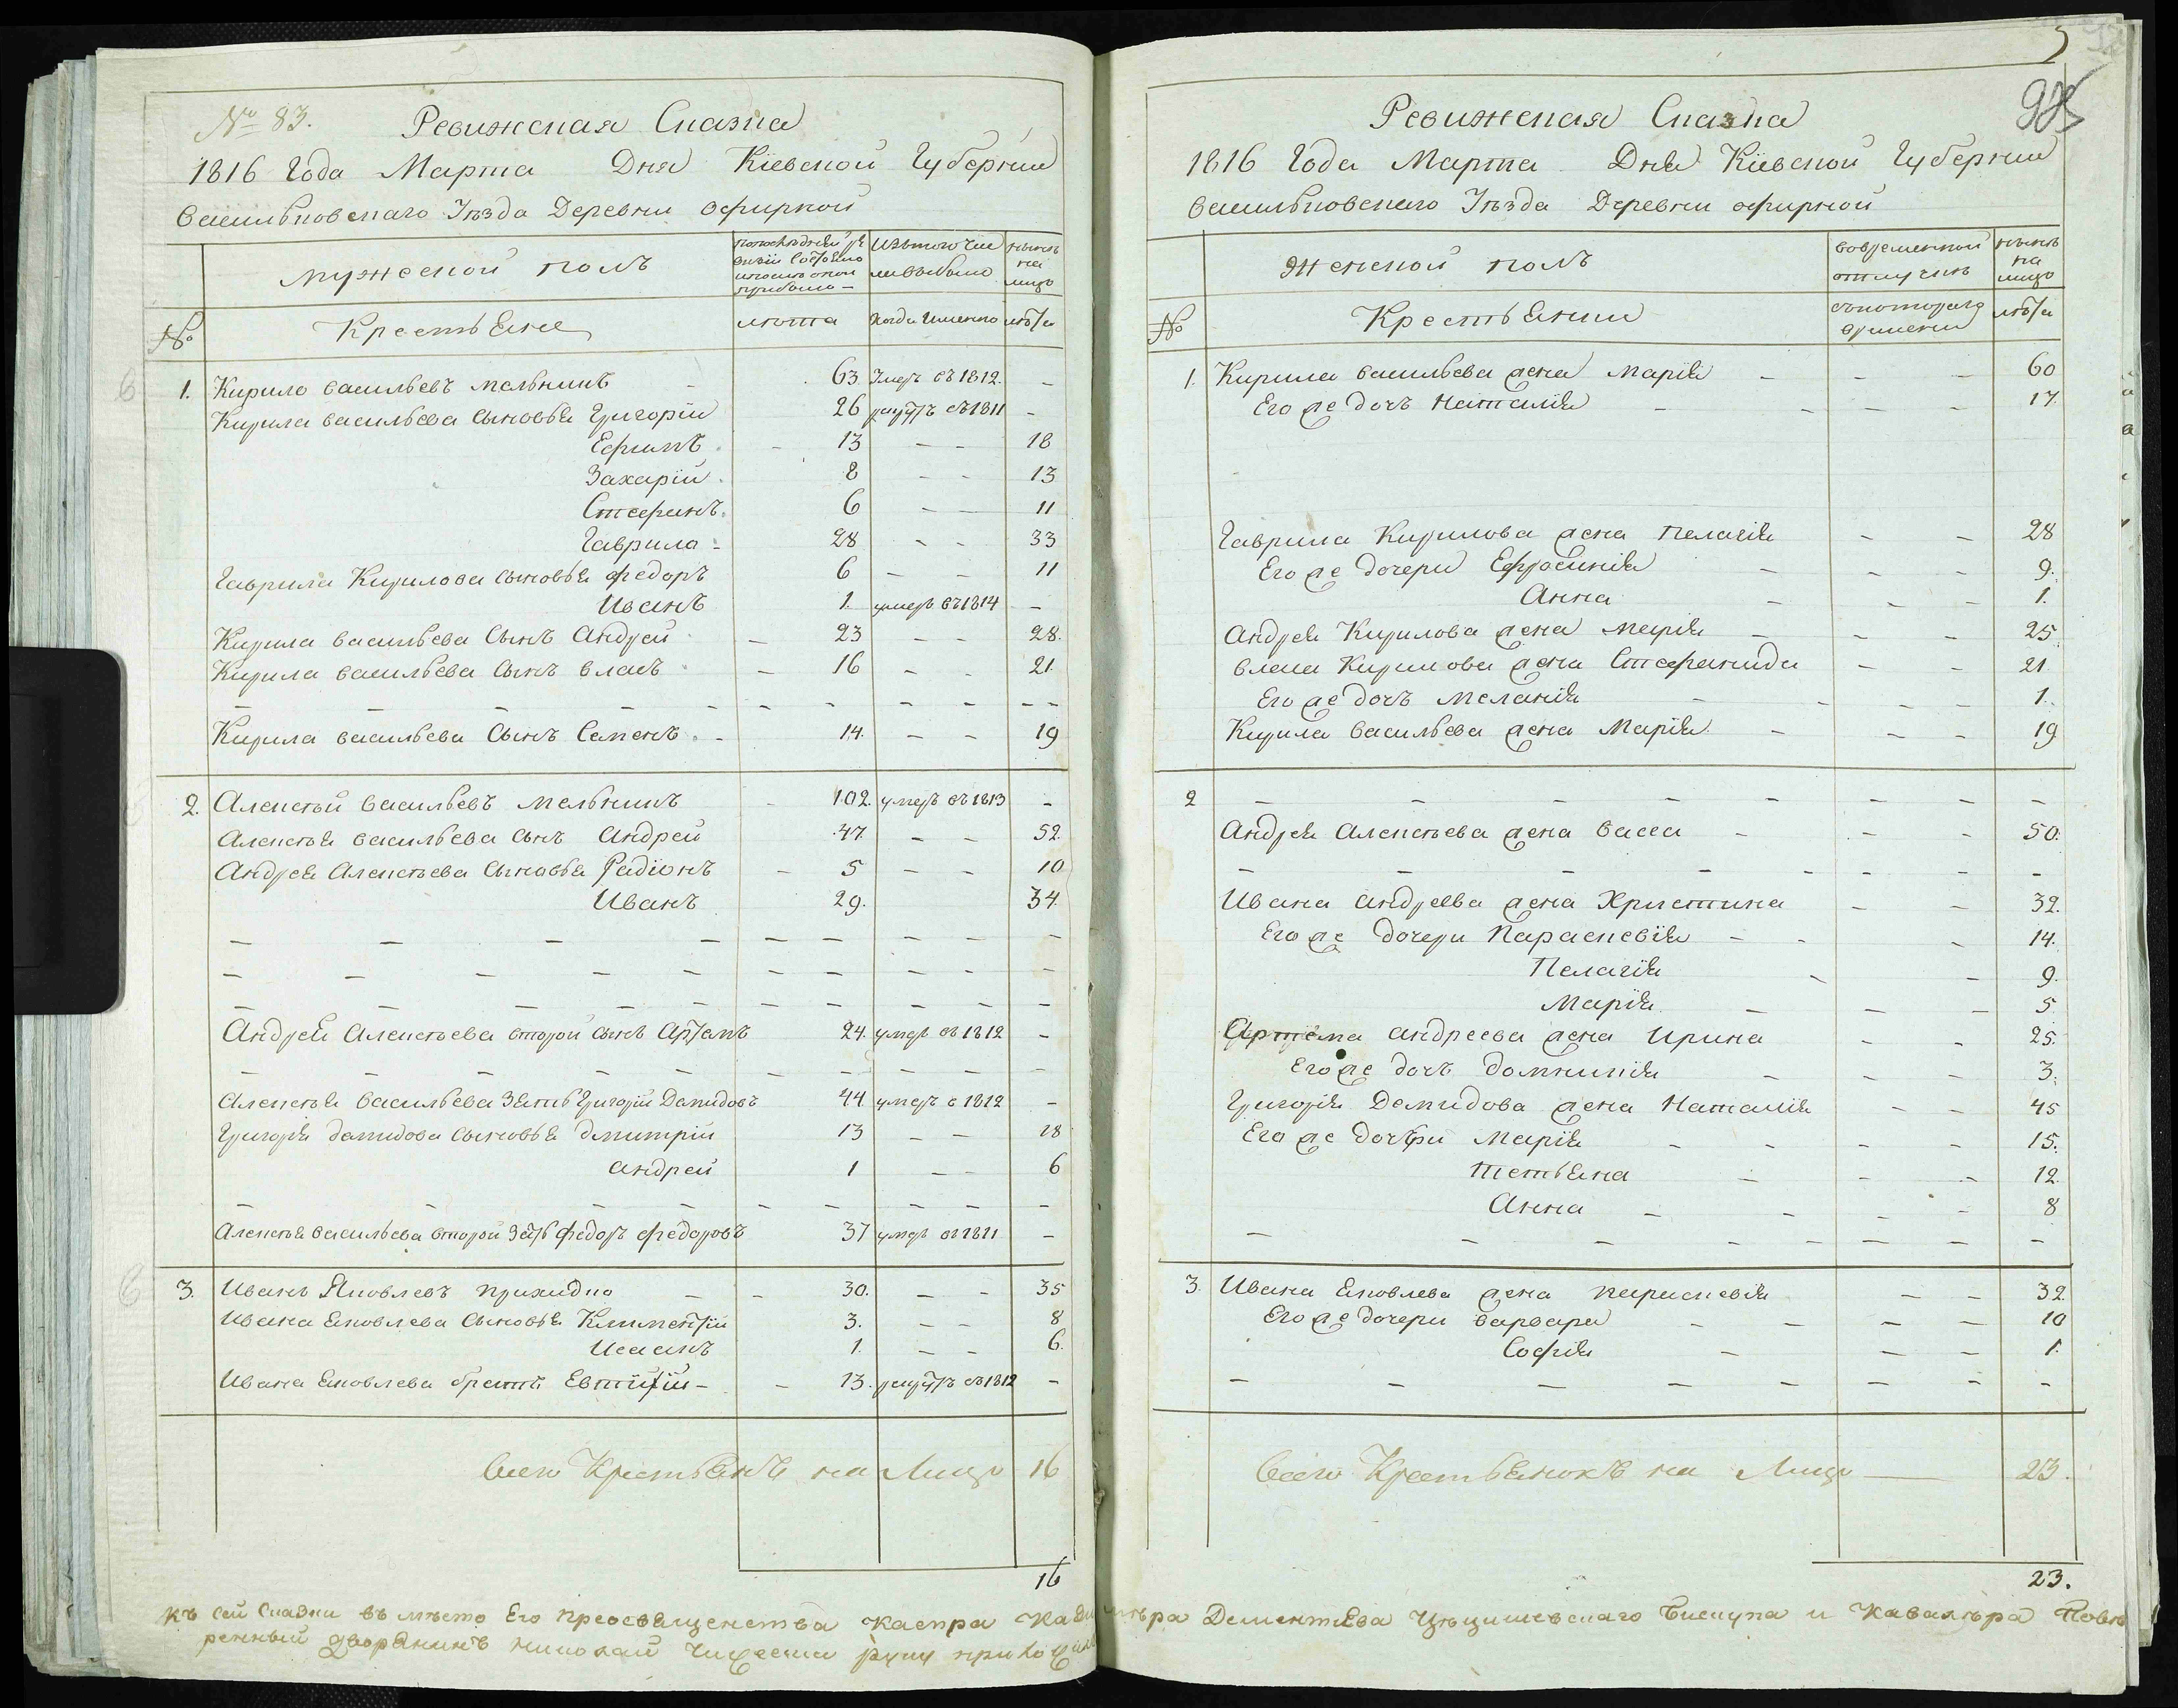 № 83. Ревижская Сказка
1816 Года Марта Дня Кіевской Губерніи
васильковскаго Уѣзда Деревни офирной
мужеской полъ
Изътого числа выбыло
нынѣ на лицо
№ Крестьяне лѣта когда именно лѣта
1. Кирило васильевъ мельникъ - 63 Умеръ въ 1812. -
Кирила васильева сыновья Григорій 26 рекрутъ въ 1811 -
Ефимъ - 13 - - 18
Захарій 8 - - 13
Стефанъ 6 - - 11
Гаврила - 28 - - 33
Гаврила Кирилова сыновья федоръ 6 - - 11
Иванъ 1. умеръ въ 1814 -
Кирила васильева Сынъ Андрей - 23 - - 28.
Кирила васильева Сынъ власъ - 16 - - 21.
- - - - - - - - - - - -
Кирила васильева Сынъ Семенъ - 14. - - 19
2. Алексѣй васильевъ мельникъ - 102. умеръ въ 1813 -
Алексѣя васильева сынъ Андрей 47 - - 52.
Андрея Алексѣева сыновья Радіонъ - 5 - - 10
Иванъ 29. 34.
- - - - - - - - -
- - - - - - - - - -
- - - - - - - - - -
Андрея Алексѣева второй сынъ Артемъ 24. умеръ въ 1812 -
- - - - - - - - - -
Алексѣя васильева Зять Григорій Демидовъ 44 умеръ в 1812 -
Григорія демидова сыновья дмитрій 13 - - 18
андрей 1 - - 6
- - - - - - - - - -
Алексѣя васильева второй зять федоръ федоровъ 37 умеръ въ 1811 -
3. Иванъ Яковлевъ прихидко - - 30. - - 35
Ивана Яковлева сыновья Климентій 3. - - 8
Исаакъ 1. - - 6.
Ивана Яковлева братъ Евтифій - - 13. рекрутъ въ 1812 -
Всего Крестьянъ на Лицо 16
16
Ревижская Сказка
1816 Года Марта Дня Кіевской Губерніи
васильковскаго Уѣзда Деревни офирной
Женской полъ
вовременной отлучкѣ
нынѣ на лицо
№ Крестьянки
съкотораго времени
лѣта
1. Кирила васильева жена Марія - - - 60
Его же дочь Наталія - - - - 17.
Гаврила Кирилова жена Пелагія - - 28
Его же дочери Ефросинія - - - 9.
Анна - - - 1.
Андрея Кирилова жена Марія - - - 25
власа Кирилова жена Стефанида - - 21
Его же дочь Меланія - - - - 1.
Кирила васильева жена Марія - - - 19
2 - - - - - - - - -
Андрея Алексѣева жена васса - - - 50.
- - - - - - - - -
Ивана андреева жена Христина - - 32.
Его же дочери Параскевія - - - 14.
Пелагія - - 9.
Марія - - - 5
Артема андреева жена Ирина - - 25.
Его же дочь домникія - - - 3.
Григорія Демидова жена Наталія - - 45
Его же дочери Марія - - - - 15.
Тетьяна - - - 12.
Анна - - - - 8
- - - - - - - - -
3. Ивана Яковлева жена параскевія - - 32
Его же дочери варвара - - - - 10
Софія - - - 1.
- - - - - - - - -
Всего Крестьянокъ на Лицо 23.
23.
къ сей сказки въ мѣсто Его преосвященства Каспра Казимѣра Дементіева Цѣцишевскаго бискупа и Кавалѣра Повѣ
ренный дворянинъ николай руку приложилъ